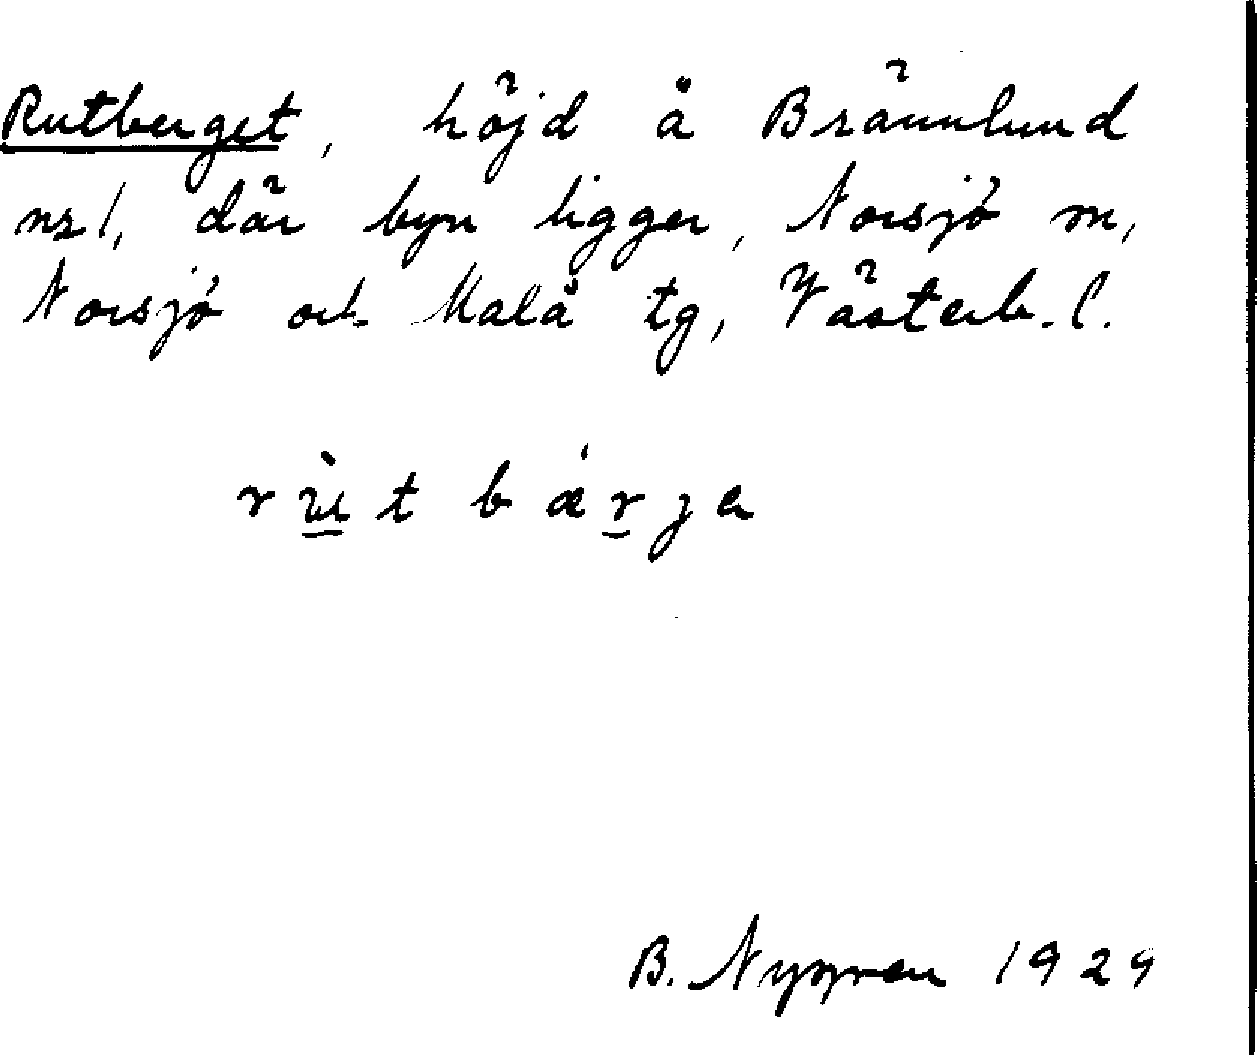 Rutberget, höjd å Brännlund
nr 1, där byn ligger, Norsjö sn,
Norsjö och Malå tg, Västerb. l.
rùt bǽrjα
B. Nygren 1929